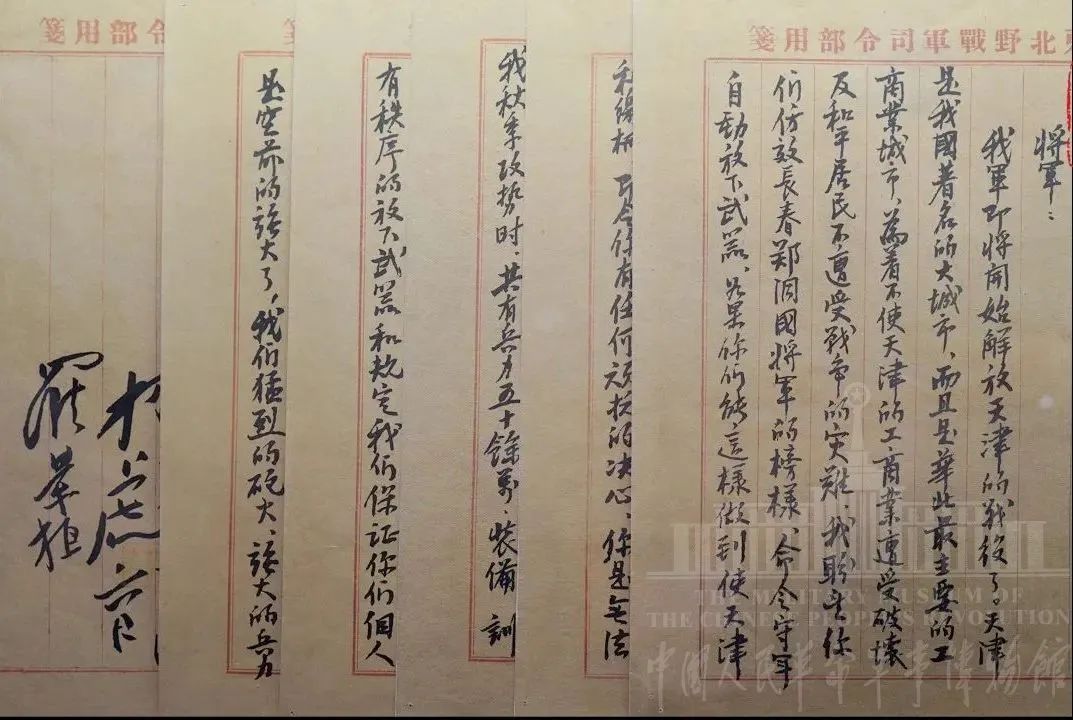 北野戰軍司令部用箋
将軍：
我軍即将開始解放天津的战役了。天津
是我國著名的大城市、而且是華北最主要的工
商業城市、為着不使天津的工商業遭受破壞
及和平居民不遭受戰争的灾难、我盼望你
们仿效長春郑洞國将軍的榜樣、命令守軍
自動放下武器、如果你们能這樣做到使天津
令你有任何頑抗的决心、你是無法
我秋季攻势时、共有兵力五十餘萬、装備 訓
有秩序的放下武器和規定我们保证你们個人
箋
是空前的强大了，我们猛烈的砲火、强大的兵力
令部用箋
羅荣桓
THE MILITARY MUSEUM OF
THE CHINESE PEOPLE'S REVOLUTION
中國人民革命軍事博物館